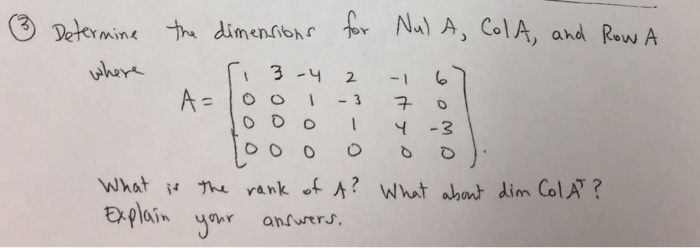 ③ Determine the dimensions for Nul A, Col A, and Row A
where
A = [ 1 3 -4 2 -1 6
0 0 1 -3 7 0
0 0 0 1 4 -3
0 0 0 0 0 0 ].
What is the rank of A? What about dim Col Aᵀ?
Explain your answers.